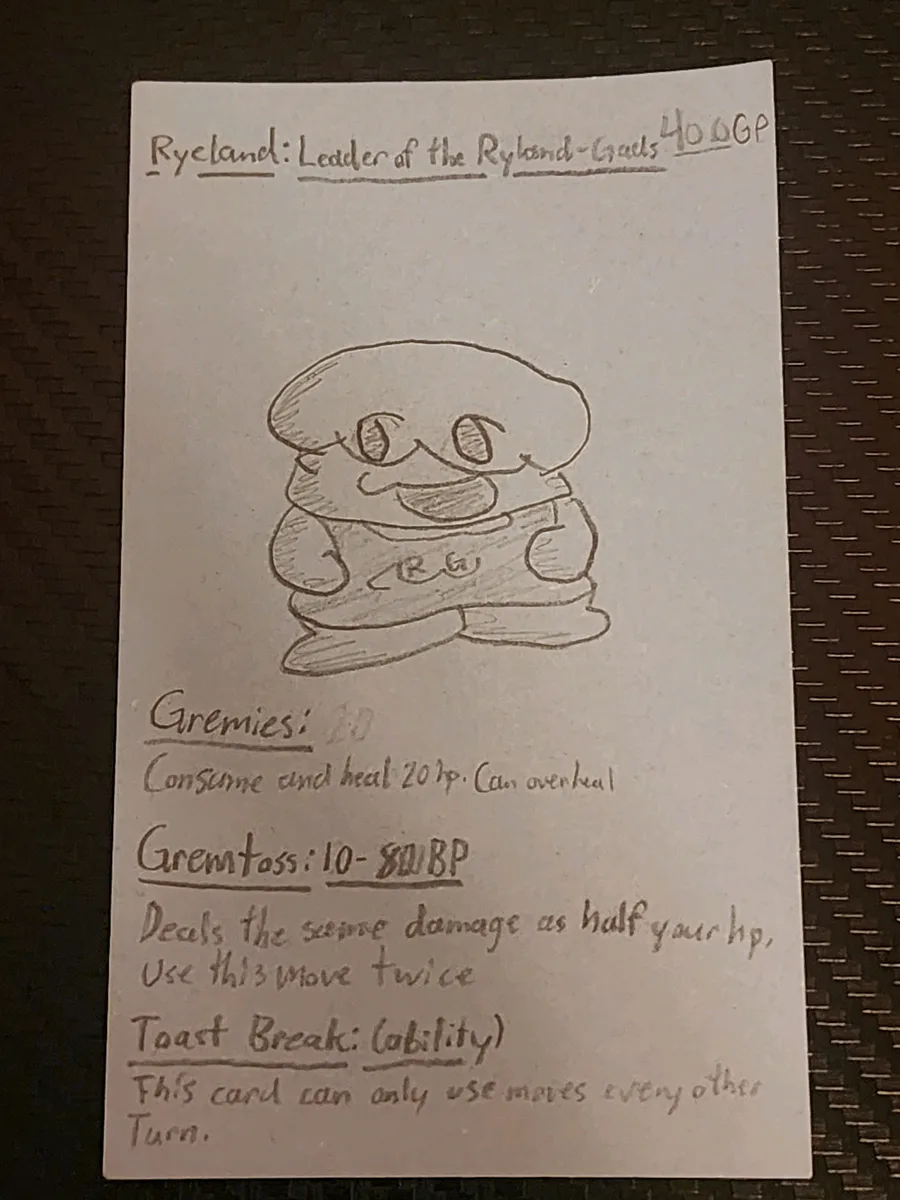 Ryeland: Leader of the Ryland-Gads 400GP
RG
Gremies: 20
Consume and heal 20 hp. Can overheal
Gremtoss: 10- BP
Deals the same damage as half your hp,
Use this move twice
Toast Break: (ability)
This card can only use moves every other
Turn.